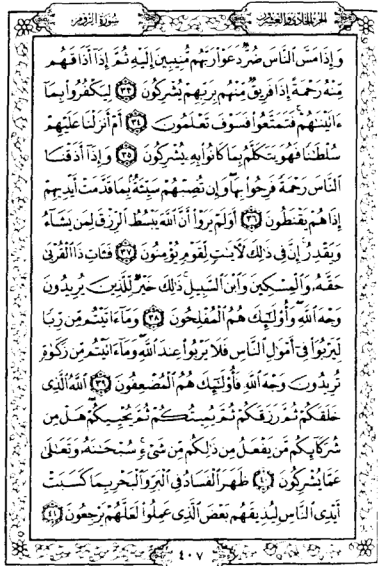 الجزء الحادي والعشرون سورة الروم
وَإِذَا مَسَّ ٱلنَّاسَ ضُرٌّ دَعَوْا۟ رَبَّهُم مُّنِيبِينَ إِلَيْهِ ثُمَّ إِذَآ أَذَاقَهُم
مِّنْهُ رَحْمَةً إِذَا فَرِيقٌ مِّنْهُم بِرَبِّهِمْ يُشْرِكُونَ ٣٣ لِيَكْفُرُوا۟ بِمَآ
ءَاتَيْنَٰهُمْ فَتَمَتَّعُوا۟ فَسَوْفَ تَعْلَمُونَ ٣٤ أَمْ أَنزَلْنَا عَلَيْهِمْ
سُلْطَٰنًا فَهُوَ يَتَكَلَّمُ بِمَا كَانُوا۟ بِهِۦ يُشْرِكُونَ ٣٥ وَإِذَآ أَذَقْنَا
ٱلنَّاسَ رَحْمَةً فَرِحُوا۟ بِهَا وَإِن تُصِبْهُمْ سَيِّئَةٌۢ بِمَا قَدَّمَتْ أَيْدِيهِمْ
إِذَا هُمْ يَقْنَطُونَ ٣٦ أَوَلَمْ يَرَوْا۟ أَنَّ ٱللَّهَ يَبْسُطُ ٱلرِّزْقَ لِمَن يَشَآءُ
وَيَقْدِرُ إِنَّ فِى ذَٰلِكَ لَءَايَٰتٍ لِّقَوْمٍ يُؤْمِنُونَ ٣٧ فَـَٔاتِ ذَا ٱلْقُرْبَىٰ
حَقَّهُۥ وَٱلْمِسْكِينَ وَٱبْنَ ٱلسَّبِيلِ ذَٰلِكَ خَيْرٌ لِّلَّذِينَ يُرِيدُونَ
وَجْهَ ٱللَّهِ وَأُو۟لَٰٓئِكَ هُمُ ٱلْمُفْلِحُونَ ٣٨ وَمَآ ءَاتَيْتُم مِّن رِّبًا
لِّيَرْبُوَا۟ فِىٓ أَمْوَٰلِ ٱلنَّاسِ فَلَا يَرْبُوا۟ عِندَ ٱللَّهِ وَمَآ ءَاتَيْتُم مِّن زَكَوٰةٍ
تُرِيدُونَ وَجْهَ ٱللَّهِ فَأُو۟لَٰٓئِكَ هُمُ ٱلْمُضْعِفُونَ ٣٩ ٱللَّهُ ٱلَّذِى
خَلَقَكُمْ ثُمَّ رَزَقَكُمْ ثُمَّ يُمِيتُكُمْ ثُمَّ يُحْيِيكُمْ هَلْ مِن
شُرَكَآئِكُم مَّن يَفْعَلُ مِن ذَٰلِكُم مِّن شَىْءٍ سُبْحَٰنَهُۥ وَتَعَٰلَىٰ
عَمَّا يُشْرِكُونَ ٤٠ ظَهَرَ ٱلْفَسَادُ فِى ٱلْبَرِّ وَٱلْبَحْرِ بِمَا كَسَبَتْ
أَيْدِى ٱلنَّاسِ لِيُذِيقَهُم بَعْضَ ٱلَّذِى عَمِلُوا۟ لَعَلَّهُمْ يَرْجِعُونَ ٤١
٤٠٧